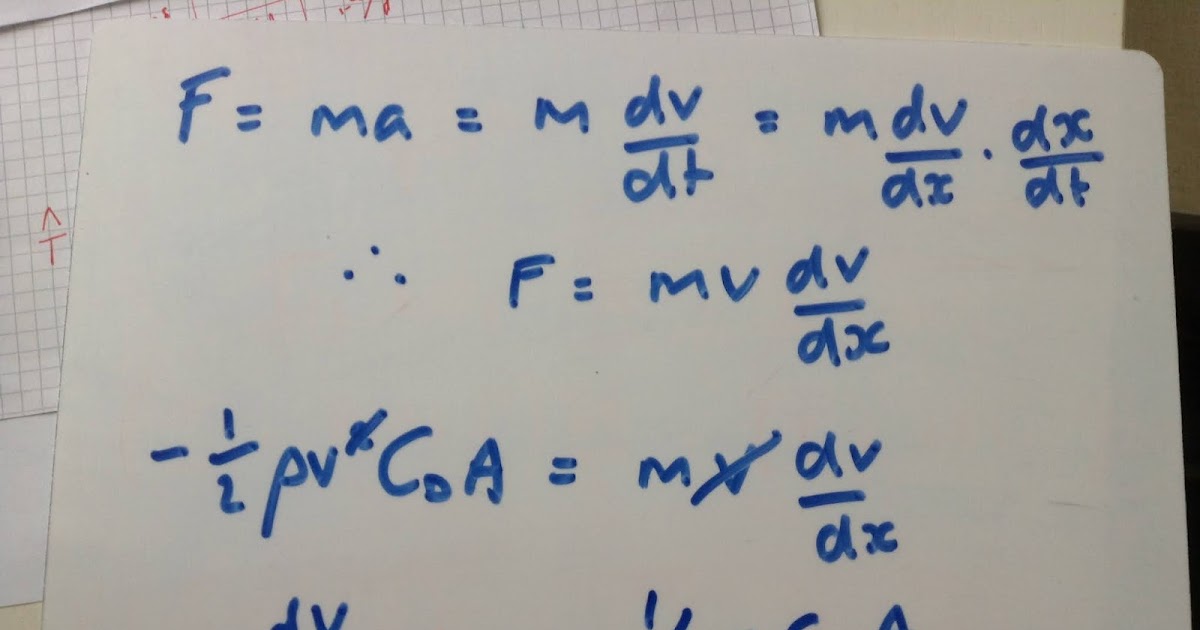 F = ma = m dv/dt = m dv/dx · dx/dt
∴ F = mv dv/dx
- 1/2 ρv² C_D A = mv dv/dx
dv